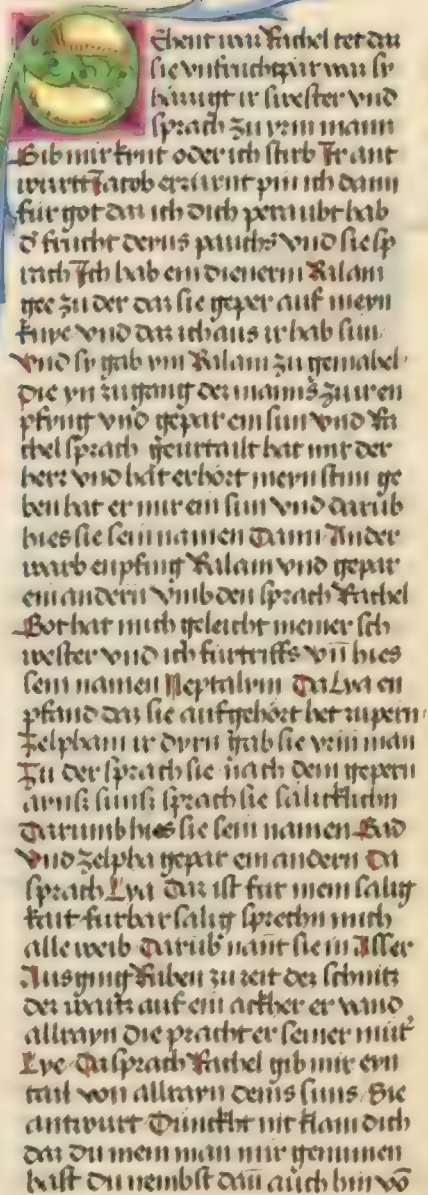 Ehent war Rachel tet daz
sie vnfruchtpar was sy
hazzigt ir swester vnd
sprach zu yrm mann
Gib mir kynt oder ich stirb Ir ant
wurtt Jacob erzurnt pin ich dann
fur got daz ich dich peraubt hab
d' frucht deyns pauchs vnd sie sp
rach Ich hab ein dienerin Balam
gee zu der daz sie geper auf meyn
knye vnd daz ich aus ir hab sun
vnd sy gab ym Balam zu gemahel
die yn zugang des manns zu ir en
pfyng vnd gepar ein sun vnd Ra
chel sprach geurtailt hat mir der
herr vnd hat erhort meyn stim ge
ben hat er mir ein sun vnd darub
hies sie sein namen Dann Ander
warb enpfing Balam vnd gepar
ein andern vmb den sprach Rachel
Got hat mich geleicht meiner sch
wester vnd ich furtriffs vn hies
sein namen Neptalym Da Lya en
pfand daz sie aufgehört het zu pern
Zelpham ir dyrn gab sie yrm man
Zu der sprach sie nach dem gepern
ains suns sprach sie salicklichn
Darumb hies sie sein namen Gad
Vnd zelpha gepar ein andern Da
sprach Lya Daz ist fur mein salig
kait furbar salig sprechn mich
alle weib Darub nant sie in Asser
Ausging Ruben zu zeit des schnitz
des waitz auf ein ackher er vand
allrayn die pracht er seiner mut'
Lye Da sprach Rachel gib mir eyn
tail von allrayn deins suns Sie
antwurt Dunckht nit klain dich
daz du mein man mir genumen
hast du nembst dan auch hin vo